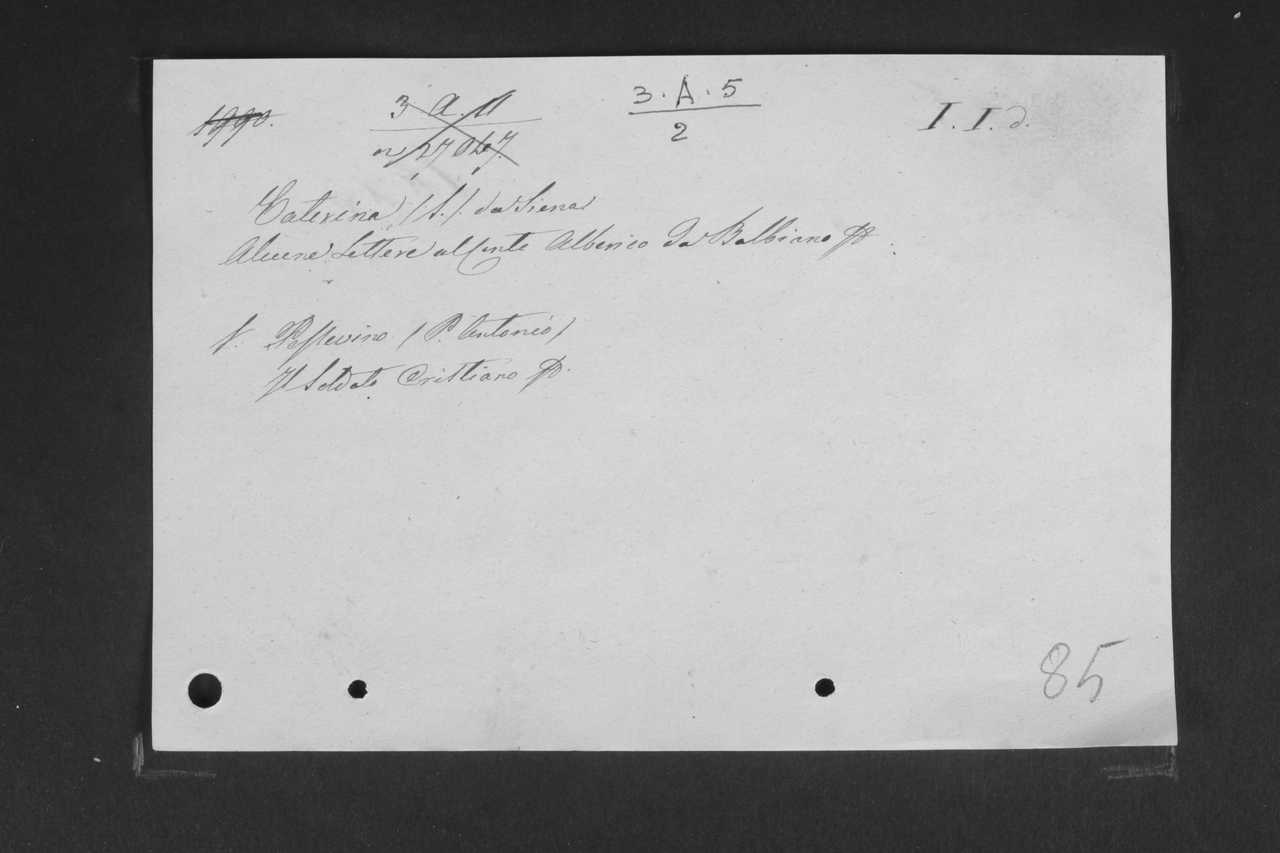 1990.
3 A. 11
n. 27047.
3. A. 5
2
I. I. d.
Caterina (S.) da Siena
Alcune Lettere al Conte Alberico da Balbiano
V. (P. Antonio)
Il Soldato Cristiano
85